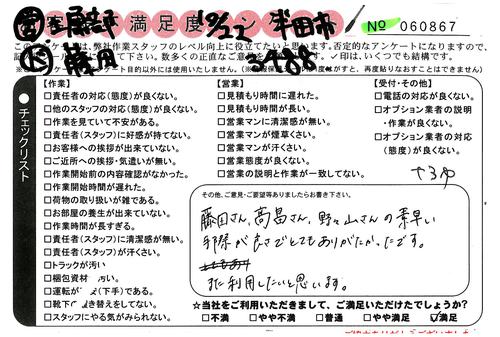 満足度
10/22 半田市
No 060867
3488
このアンケートは、弊社作業スタッフのレベル向上に役立てたいと思います。否定的なアンケートになりますので、
下さい。数多くの正直なご意見をお寄せ下さい。✓印は、いくつでも結構です。
チェックリスト
【作業】
□責任者の対応(態度)が良くない。
□他のスタッフの対応(態度)が良くない。
□作業を見ていて不安がある。
□責任者(スタッフ)に好感が持てない。
□お客様への挨拶が出来ていない。
□ご近所への挨拶・気遣いが無い。
□作業開始前の内容確認がなかった。
□作業開始時間が遅れた。
□荷物の取り扱いが雑である。
□お部屋の養生が出来ていない。
□作業時間が長すぎる。
□責任者(スタッフ)に清潔感が無い。
□責任者(スタッフ)が汗くさい。
□トラックが汚い
□梱包資材 汚い。
□運転が (下手)である。
□靴下 き替えをしてない。
□スタッフにやる気がみられない。
【営業】
□見積もり時間に遅れた。
□見積もり時間が長い。
□営業マンに清潔感が無い。
□営業マンが煙草くさい。
□営業マンが汗くさい。
□営業態度が良くない。
□営業の説明と作業が一致してない。
【受付・その他】
□電話の対応が良くない。
□オプション業者の説明
・作業が良くない。
□オプション業者の対応
(態度)が良くない。
その他、ご意見・ご要望等ありましたらお書き下さい。
藤田さん、高畠さん、野々山さんの素早い
手際が良さでとてもありがたかったです。
また利用したいと思います。
☆当社をご利用いただきまして、ご満足いただけたでしょうか?
□不満 □やや不満 □普通 □やや満足 ☑満足